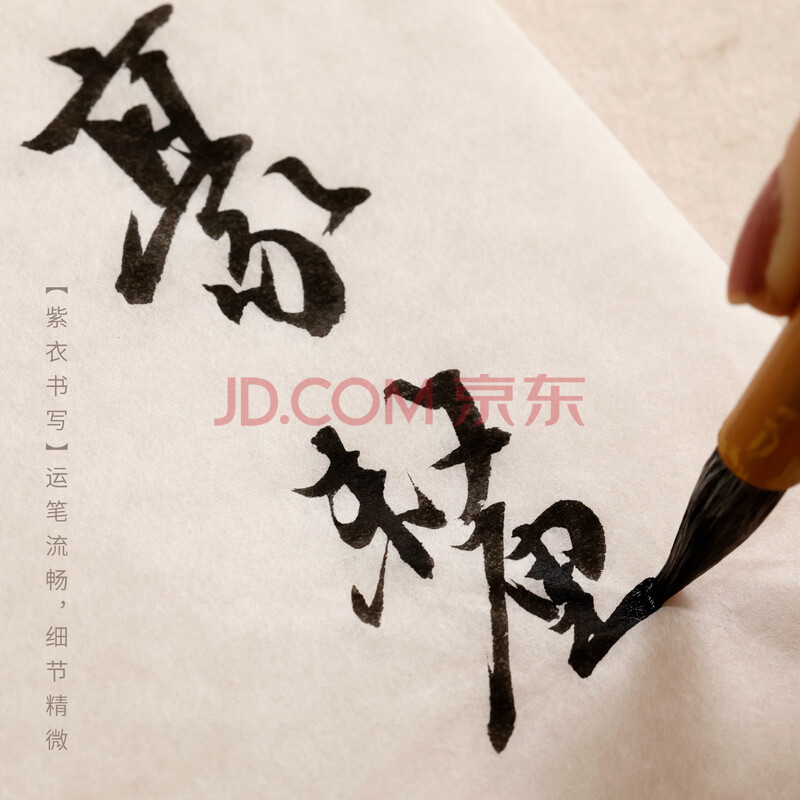 豪釐
JD.COM 京东
【紫衣书写】运笔流畅，细节精微